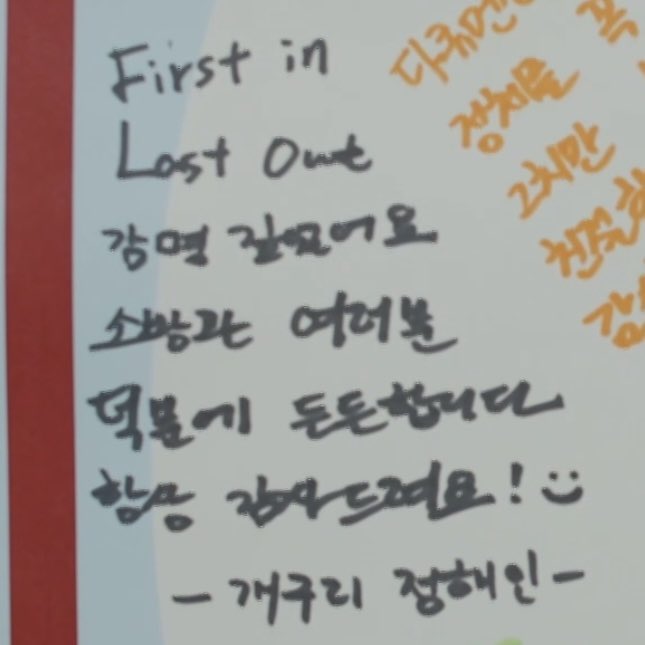 First in
Last Out
감명 깊었어요
소방관 여러분
덕분에 든든합니다
항상 감사드려요! :)
- 개구리 정해인 -
다큐멘
정치를
2치만
친절한